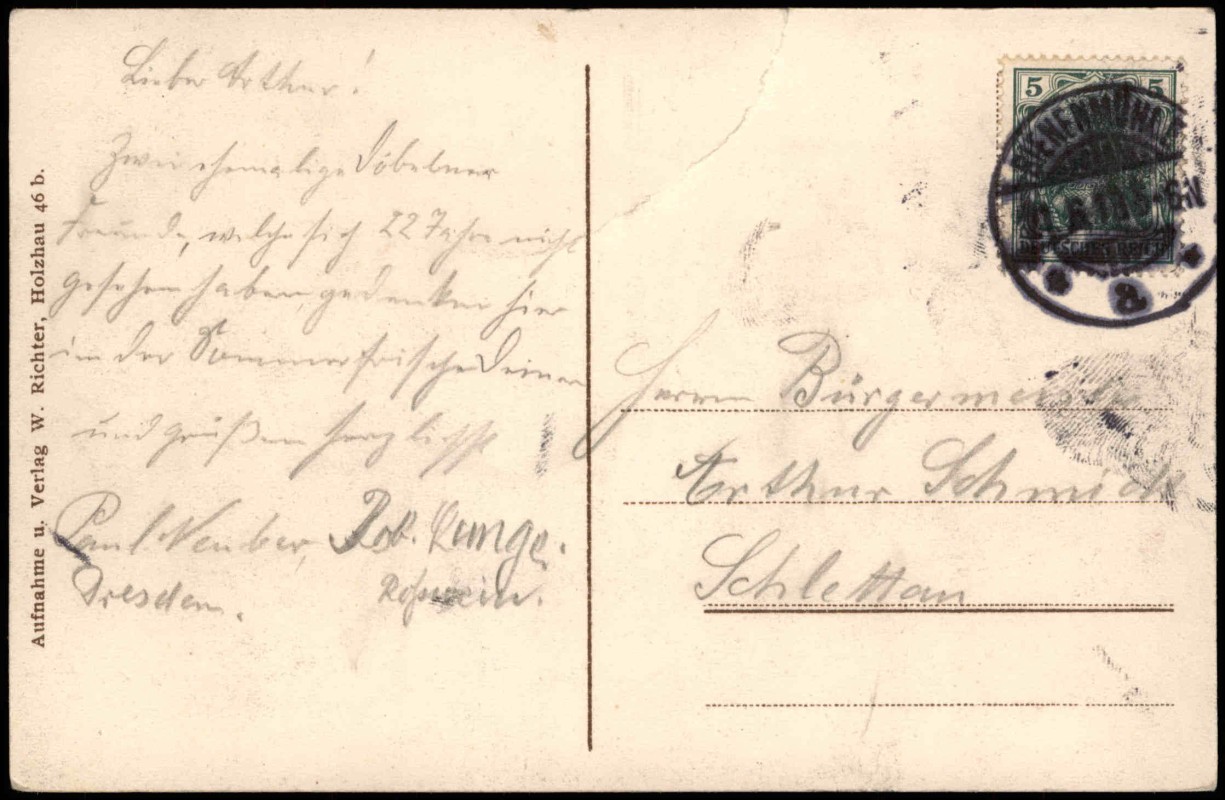 Lieber Arthur!
Zwei ehemalige Döbelner
Freunde, welche sich 22 Jahre nicht
gesehen haben, gedenken hier
in der Sommerfrische Deiner
und grüßen herzlichst
Paul Neuber, Rob. Runge.
Dresden. Roßwein.
Aufnahme u. Verlag W. Richter, Holzhau 46 b.
5 5
BIENENMÜHLE
5-6N
DEUTSCHES REICH
a
Herrn Bürgermeister
Arthur Schmidt
Schlettau